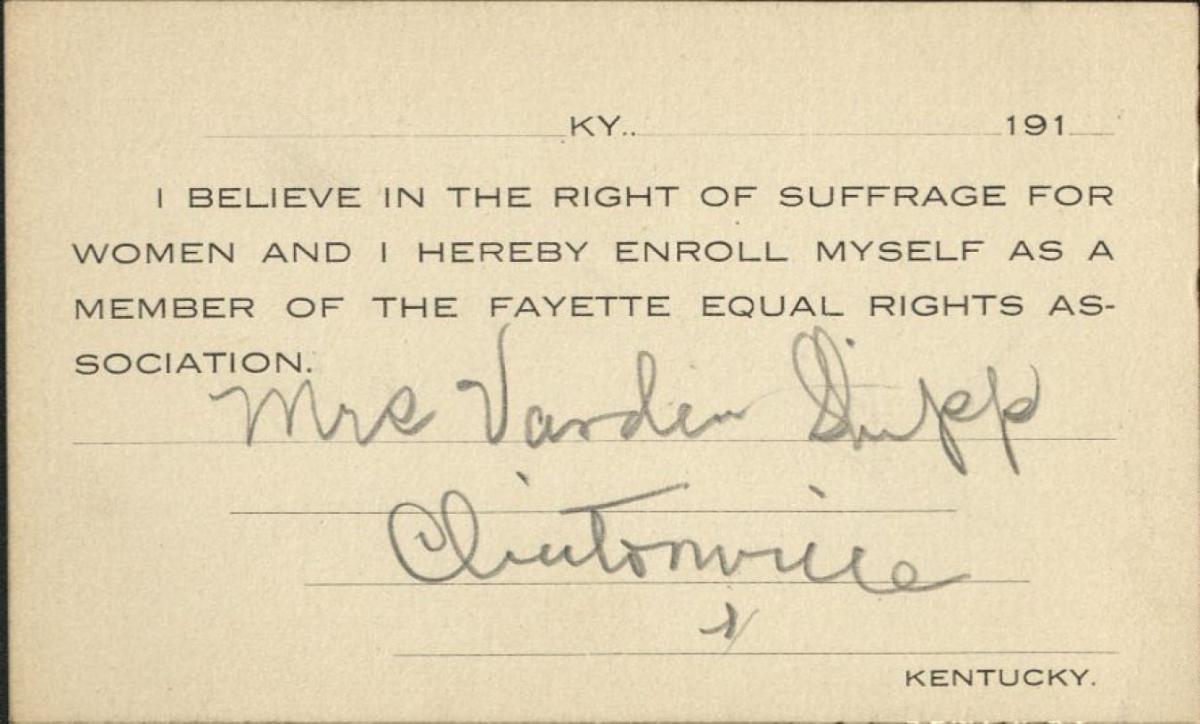 KY.. 191
I BELIEVE IN THE RIGHT OF SUFFRAGE FOR
WOMEN AND I HEREBY ENROLL MYSELF AS A
MEMBER OF THE FAYETTE EQUAL RIGHTS AS-
SOCIATION.
Mrs Varden Shipp
Clintonville
KENTUCKY.